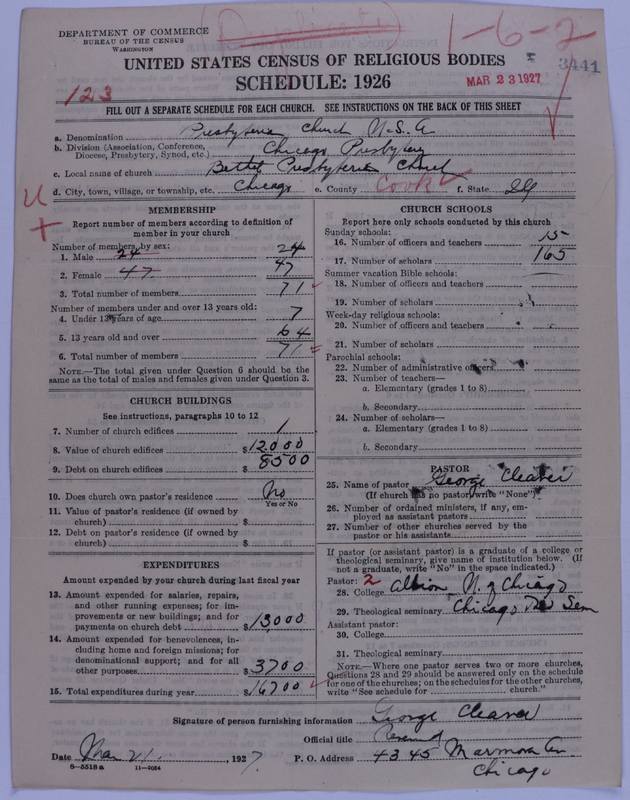 DEPARTMENT OF COMMERCE
BUREAU OF THE CENSUS
WASHINGTON
1-6-2
3441
UNITED STATES CENSUS OF RELIGIOUS BODIES
SCHEDULE: 1926
MAR 23 1927
123
FILL OUT A SEPARATE SCHEDULE FOR EACH CHURCH. SEE INSTRUCTIONS ON THE BACK OF THIS SHEET
a. Denomination Presbyterian Church U.S.A
b. Division (Association, Conference, Diocese, Presbytery, Synod, etc.) Chicago Presbytery
c. Local name of church Bethel Presbyterian Church
d. City, town, village, or township, etc. Chicago e. County Cook f. State Ill
U
MEMBERSHIP
Report number of members according to definition of
member in your church
Number of members, by sex:
1. Male 24 24
2. Female 47 47
3. Total number of members 71
Number of members under and over 13 years old:
4. Under 13 years of age 7
5. 13 years old and over 64
6. Total number of members 71
NOTE.—The total given under Question 6 should be the
same as the total of males and females given under Question 3.
CHURCH BUILDINGS
See instructions, paragraphs 10 to 12
7. Number of church edifices 1
8. Value of church edifices $12000
9. Debt on church edifices $8500
10. Does church own pastor's residence No
Yes or No
11. Value of pastor's residence (if owned by
church) $
12. Debt on pastor's residence (if owned by
church) $
EXPENDITURES
Amount expended by your church during last fiscal year
13. Amount expended for salaries, repairs,
and other running expenses; for im-
provements or new buildings; and for
payments on church debt $13,000
14. Amount expended for benevolences, in-
cluding home and foreign missions; for
denominational support; and for all
other purposes $3700
15. Total expenditures during year $16700
CHURCH SCHOOLS
Report here only schools conducted by this church
Sunday schools:
16. Number of officers and teachers 15
17. Number of scholars 165
Summer vacation Bible schools:
18. Number of officers and teachers
19. Number of scholars
Week-day religious schools:
20. Number of officers and teachers
21. Number of scholars
Parochial schools:
22. Number of administrative officers
23. Number of teachers—
a. Elementary (grades 1 to 8)
b. Secondary
24. Number of scholars—
a. Elementary (grades 1 to 8)
b. Secondary
PASTOR
25. Name of pastor George Cleaver
(If church has no pastor, write "None")
26. Number of ordained ministers, if any, em-
ployed as assistant pastors
27. Number of other churches served by the
pastor or his assistants
If pastor (or assistant pastor) is a graduate of a college or
theological seminary, give name of institution below. (If
not a graduate, write "No" in the space indicated.)
Pastor: 2
28. College Albion U. of Chicago
29. Theological seminary Chicago Sem
Assistant pastor:
30. College
31. Theological seminary
NOTE.—Where one pastor serves two or more churches,
Questions 28 and 29 should be answered only on the schedule
for one of the churches; on the schedules for the other churches,
write "See schedule for church."
Signature of person furnishing information George Cleaver
Official title Reverend
Date Mar 21, 1927 P. O. Address 4345 Marmora Av
8-5518a 11-9054 Chicago